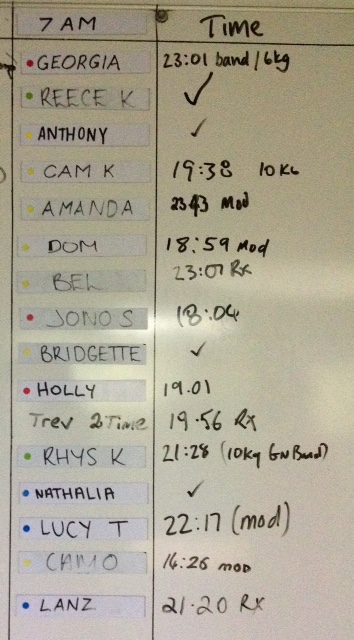 7 AM Time
GEORGIA 23:01 band / 6kg
REECE K ✓
ANTHONY ✓
CAM K 19:38 10 KG
AMANDA 23:43 Mod
DOM 18:59 Mod
BEL 23:07 Rx
JONO S 18:04
BRIDGETTE ✓
HOLLY 19.01
Trev 2Time 19.56 Rx
RHYS K 21:28 (10kg GN Band)
NATHALIA ✓
LUCY T 22:17 (mod)
CAMO 14:26 mod
LANZ 21.20 Rx